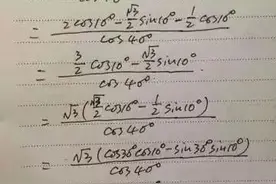 = \frac{2\cos10° - \frac{\sqrt{3}}{2}\sin10° - \frac{1}{2}\cos10°}{\cos40°}
= \frac{\frac{3}{2}\cos10° - \frac{\sqrt{3}}{2}\sin10°}{\cos40°}
= \frac{\sqrt{3}(\frac{\sqrt{3}}{2}\cos10° - \frac{1}{2}\sin10°)}{\cos40°}
= \frac{\sqrt{3}(\cos30°\cos10° - \sin30°\sin10°)}{\cos40°}